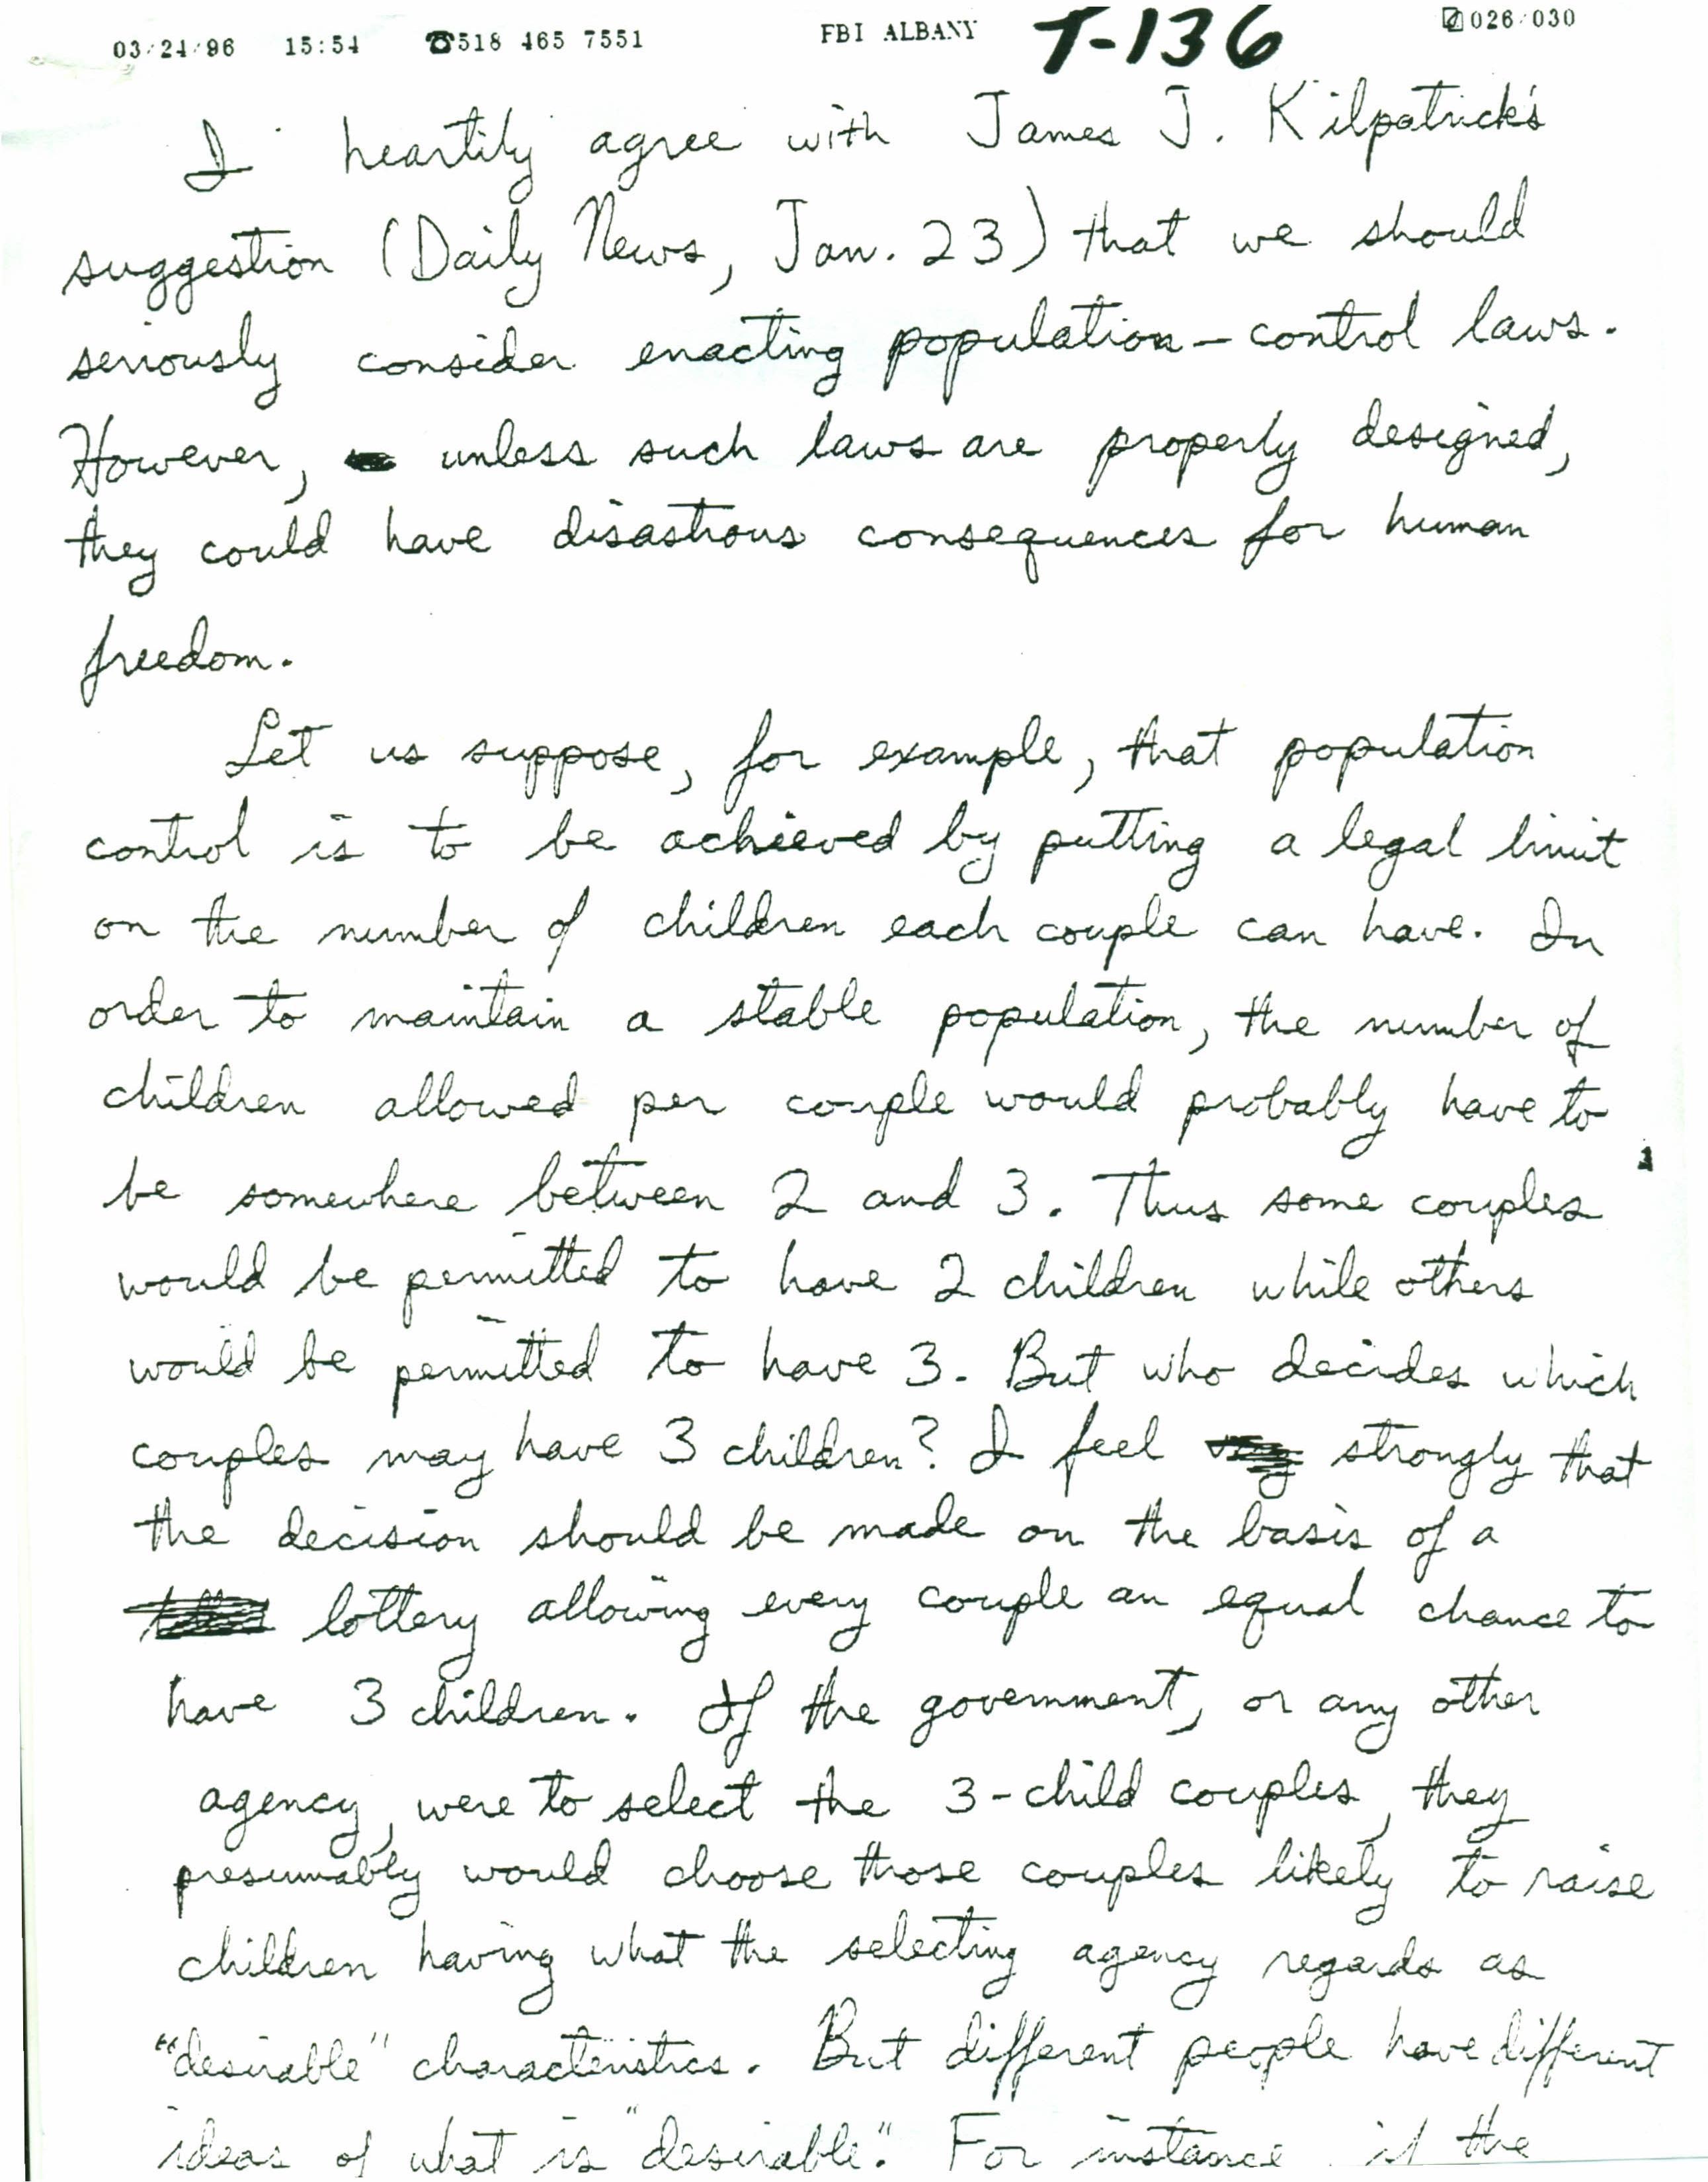 03/24/96 15:54 ☎518 465 7551 FBI ALBANY T-136 026/030
I heartily agree with James J. Kilpatrick's
suggestion (Daily News, Jan. 23) that we should
seriously consider enacting population-control laws.
However, unless such laws are properly designed,
they could have disastrous consequences for human
freedom.
Let us suppose, for example, that population
control is to be achieved by putting a legal limit
on the number of children each couple can have. In
order to maintain a stable population, the number of
children allowed per couple would probably have to
be somewhere between 2 and 3. Thus some couples
would be permitted to have 2 children while others
would be permitted to have 3. But who decides which
couples may have 3 children? I feel strongly that
the decision should be made on the basis of a
lottery allowing every couple an equal chance to
have 3 children. If the government, or any other
agency, were to select the 3-child couples, they
presumably would choose those couples likely to raise
children having what the selecting agency regards as
"desirable" characteristics. But different people have different
ideas of what is "desirable". For instance, if the